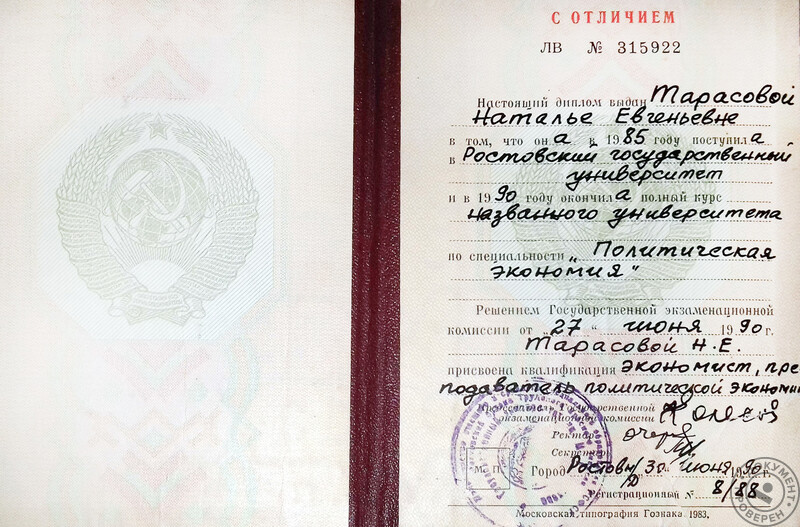 С ОТЛИЧИЕМ
ЛВ № 315922
Настоящий диплом выдан Тарасовой
Наталье Евгеньевне
в том, что она в 1985 году поступила
в Ростовский государственный
университет
и в 1990 году окончила полный курс
названного университета
по специальности „Политическая
экономия"
Решением Государственной экзаменационной
комиссии от „27" июня 1990 г.
Тарасовой Н.Е.
присвоена квалификация экономист, пре-
подаватель политической экономии
Председатель Государственной
экзаменационной комиссии
Ректор
Секретарь
М. П. Город Ростов н/Д июня 1990 г.
Регистрационный № 8/88
Московская типография Гознака. 1983.
ДОКУМЕНТ
ПРОВЕРЕН